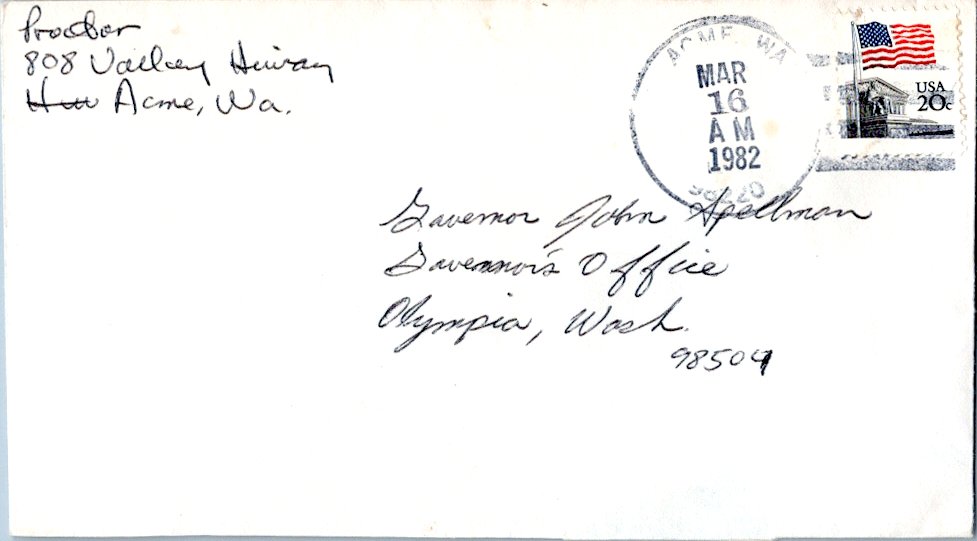 Proctor
808 Valley Hiway
Acme, Wa.
ACME, WA
MAR
16
AM
1982
98220
USA
20c
Governor John Spellman
Governor's Office
Olympia, Wash.
98504